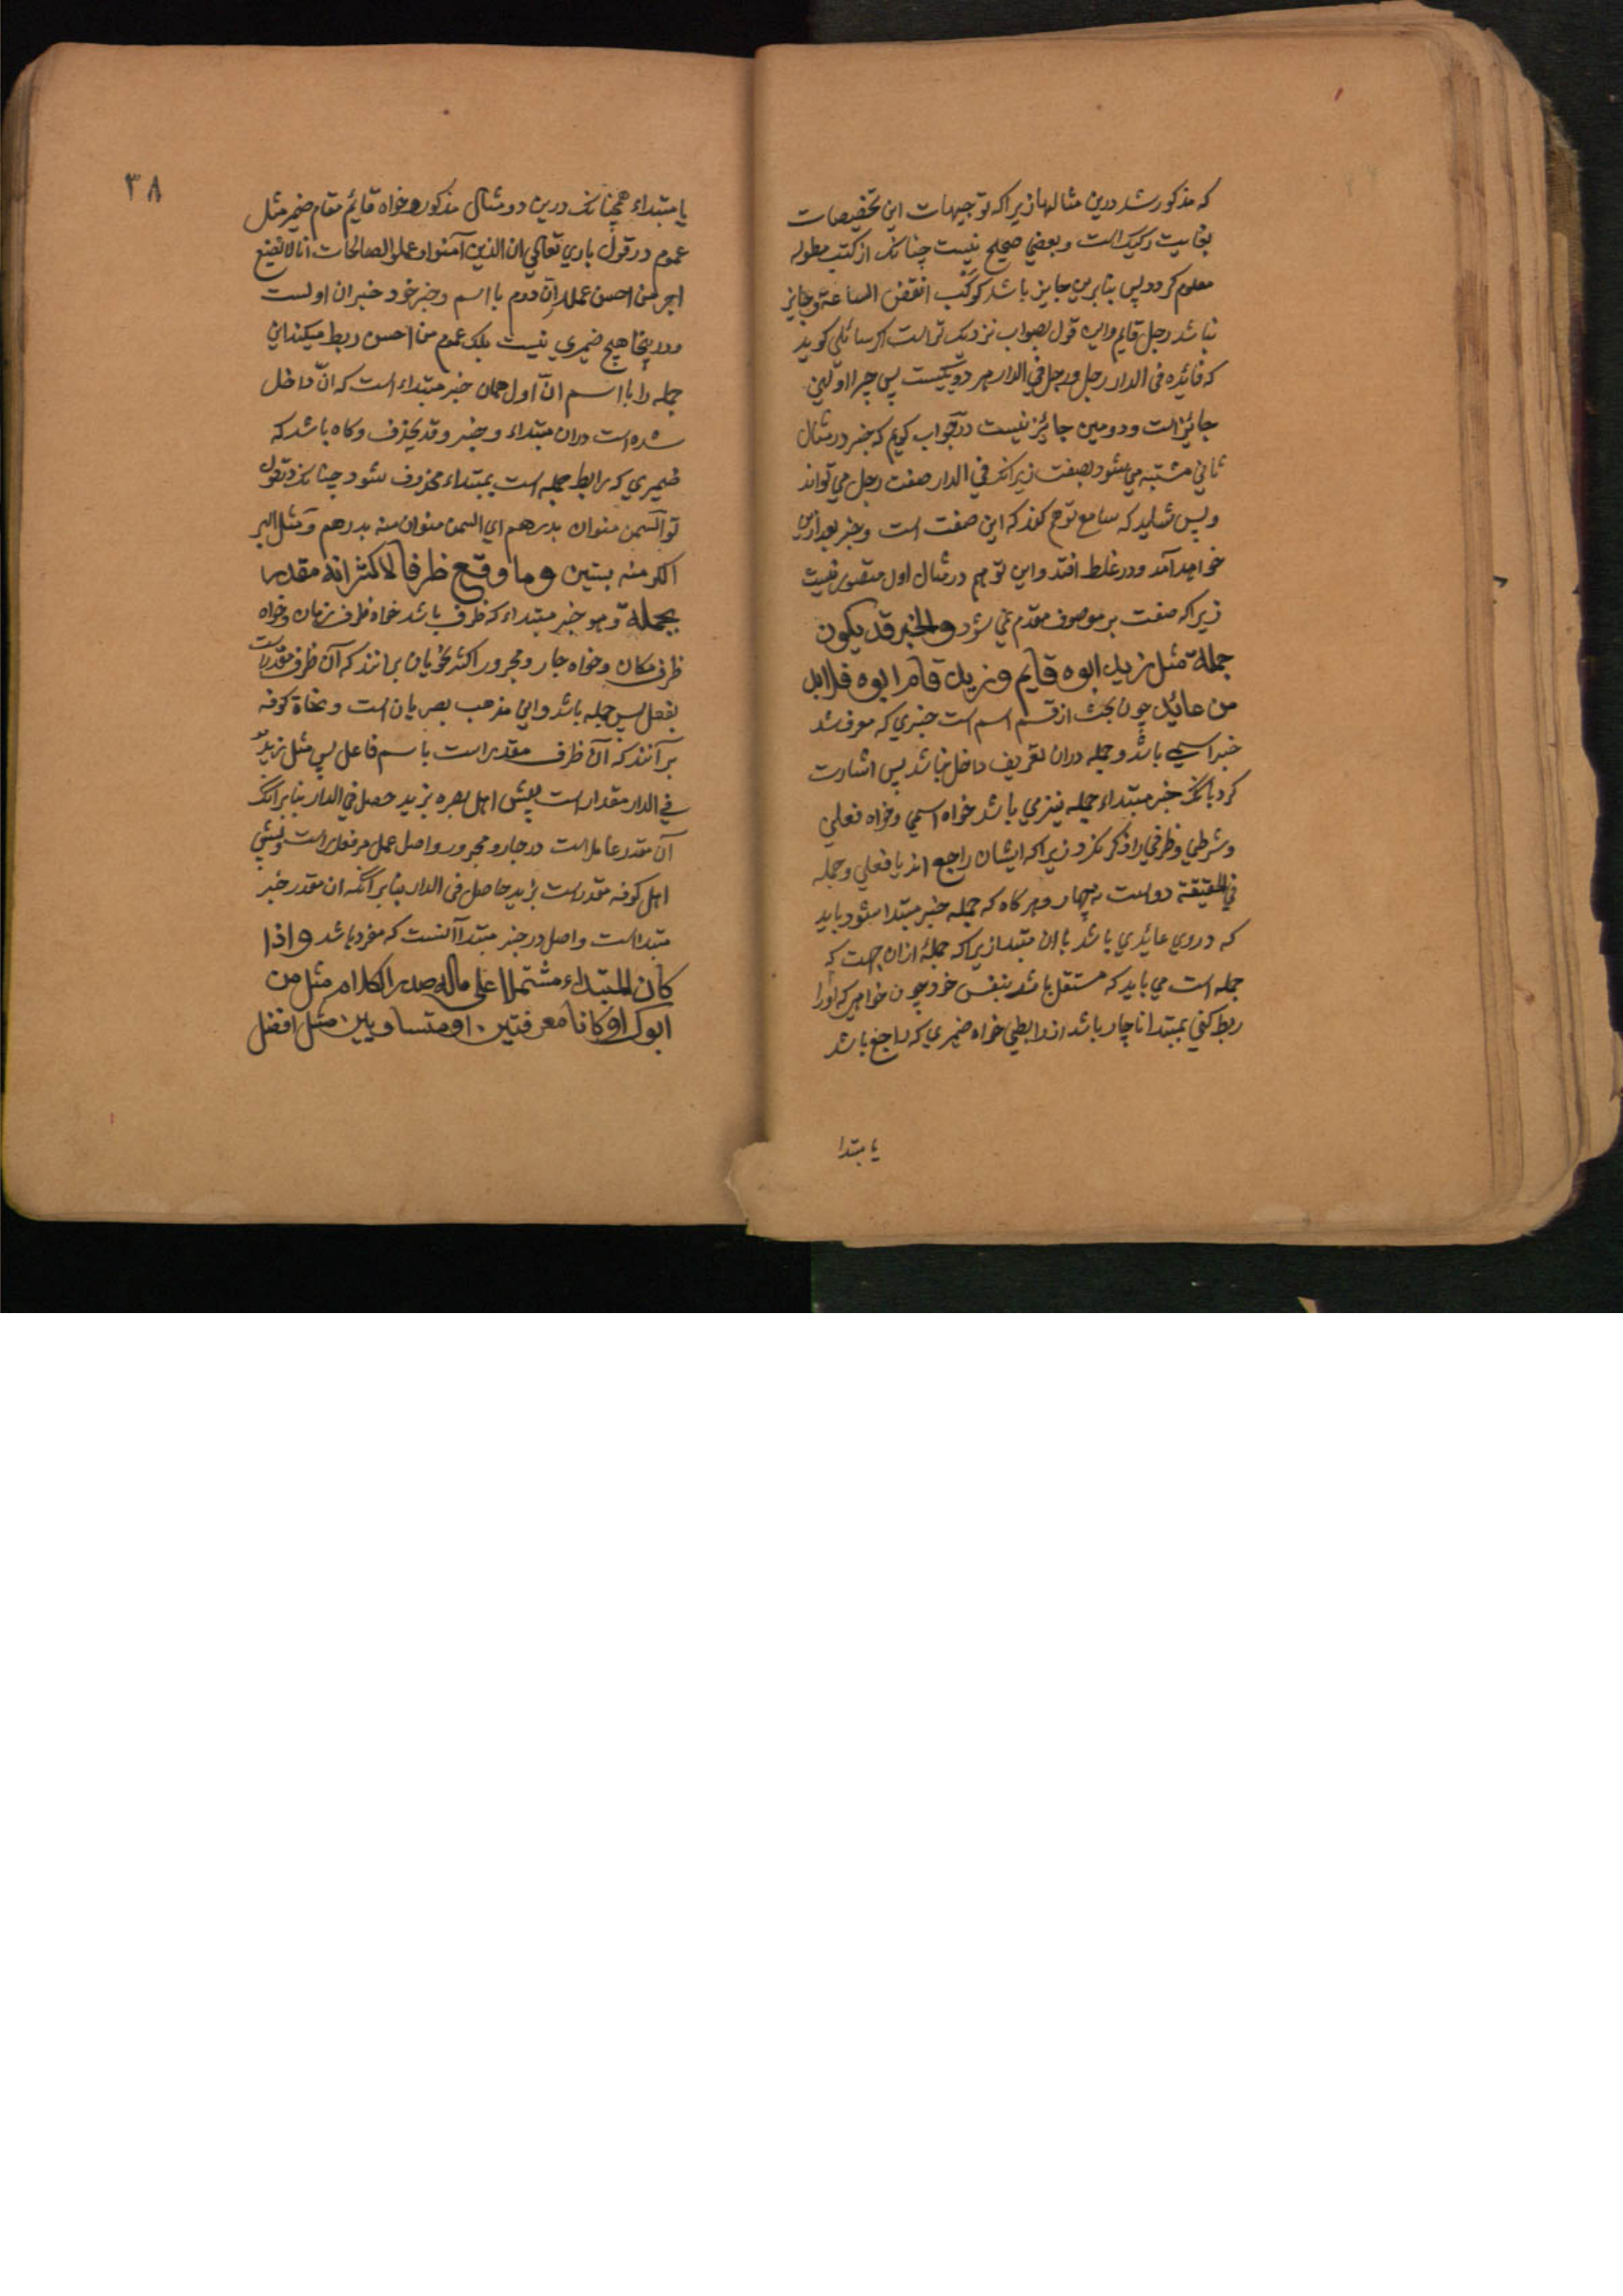 که مذکور شد درین مثالها زیرا که توجیهات این تخصیصات
بغایت رکیک است و بعضی صحیح نیست چنانک از کتب مطوله
معلوم کردد پس بنابرین جایز باشد کوکب انقض الساعة و جایز
نباشد رجل قایم و این قول بصواب نزدیک تر است اکر سائلی کوید
که فائده فی الدار رجل و رجل فی الدار هر دو یکیست پس چرا اولین
جائز است و دومین جائز نیست در جواب کویم که خبر در مثال
ثانی مشتبه می شود بصفت زیرانک فی الدار صفت رجل می تواند
و پس شاید که سامع توهم کند که این صفت است و خبر بعد ازین
خواهد آمد و در غلط افتد و این توهم در مثال اول متصور نیست
زیرا که صفت بر موصوف مقدم نمی شود والخبر قد یکون
جملة مثل زید ابوه قایم و زید قام ابوه فلا بد
من عائد چون بحث از قسم اسم است خبری که معرف شد
خبر اسمی باشد و جمله دران تعریف داخل نباشد پس اشارت
کرد بانک خبر مبتداء جمله نیز می باشد خواه اسمی و خواه فعلی
و شرطی و ظرفی را ذکر نکرد زیرا که ایشان راجع اند با فعلی و جمله
فی الحقیقة دو است نه چهار و هر کاه که جمله خبر مبتدا شود باید
که در وی عائدی باشد با ان مبتدا زیرا که جمله از ان جهت که
جمله است می باید که مستقل باشد بنفس خود چون خواهی که اورا
ربط کنی بمبتدا ناچار باشد از رابطی خواه ضمیری که راجع باشد
یا مبتدا
۳۸
یا مبتداء همچنانک درین دو مثال مذکوره خواه قایم مقام ضمیر مثل
عموم در قول باری تعالی ان الذین آمنوا و عملوا الصالحات انا لا نضیع
اجر من احسن عملا ان دوم با اسم و خبر خود خبر ان اولست
و در ینجا هیچ ضمیری نیست بلک عموم من احسن ربط میکند این
جمله را با اسم ان اول همان خبر مبتداء است که ان داخل
شده است دران مبتداء و خبر و قد یحذف و کاه باشد که
ضمیری که رابط جمله است بمبتداء محذوف شود چنانک در قول
تو السمن منوان بدرهم ای السمن منوان منه بدرهم و مثل البر
الکر منه بستین و ما وقع ظرفا فالاکثر انه مقدر
بجملة و هو خبر مبتداء که ظرف باشد خواه ظرف زمان و خواه
ظرف مکان و خواه جار و مجرور اکثر نحویان برانند که آن ظرف مقدر است
بفعل پس جمله باشد و این مذهب بصریان است و نحاة کوفه
بر آنند که آن ظرف مقدر است باسم فاعل پس مثل زید
فی الدار مقدر است پیش اهل بصره بزید حصل فی الدار بنابر انک
آن مقدر عامل است در جار و مجرور و اصل عمل مر فعل راست و پیش
اهل کوفه مقدر است بزید حاصل فی الدار بنابر آنکه ان مقدر خبر
مبتدا است و اصل در خبر مبتدا آنست که مفرد باشد و اذا
کان المبتداء مشتملا علی ماله صدر الکلام مثل من
ابوک او کانا معرفتین او متساویین مثل افضل